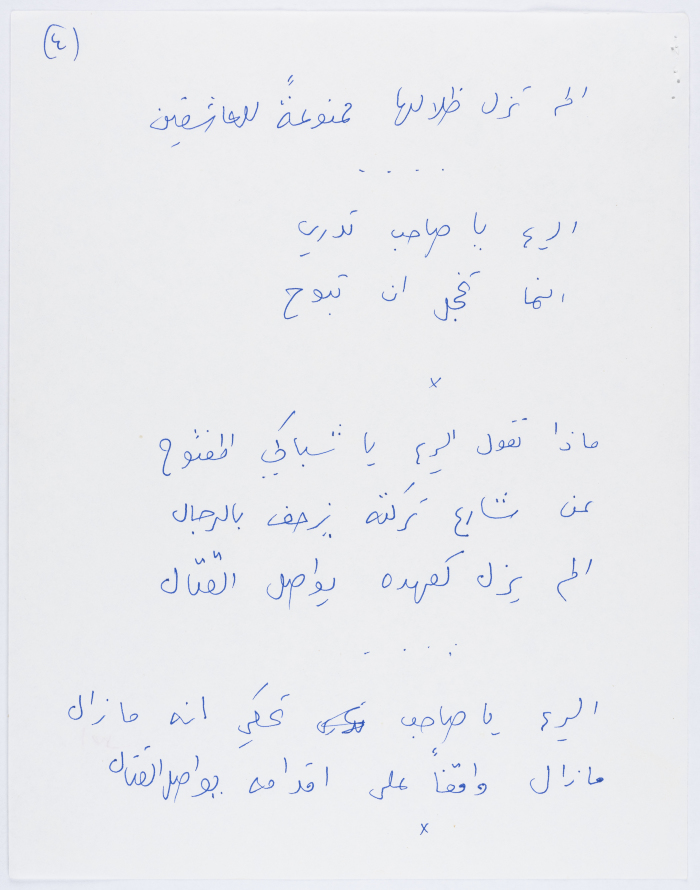 (٤)
الم تزل ظلالها ممنوعةً للعاشقين
. . . .
الريح يا صاحب تدري
انما تخجل ان تبوح
×
ماذا تقول الريح يا شباكي المفتوح
عن شارع تركته يزحف بالرجال
الم يزل كعهده يواصل القتال
. . . .
الريح يا صاحب تحكي انه مازال
مازال واقفاً على اقدامه يواصل القتال
×